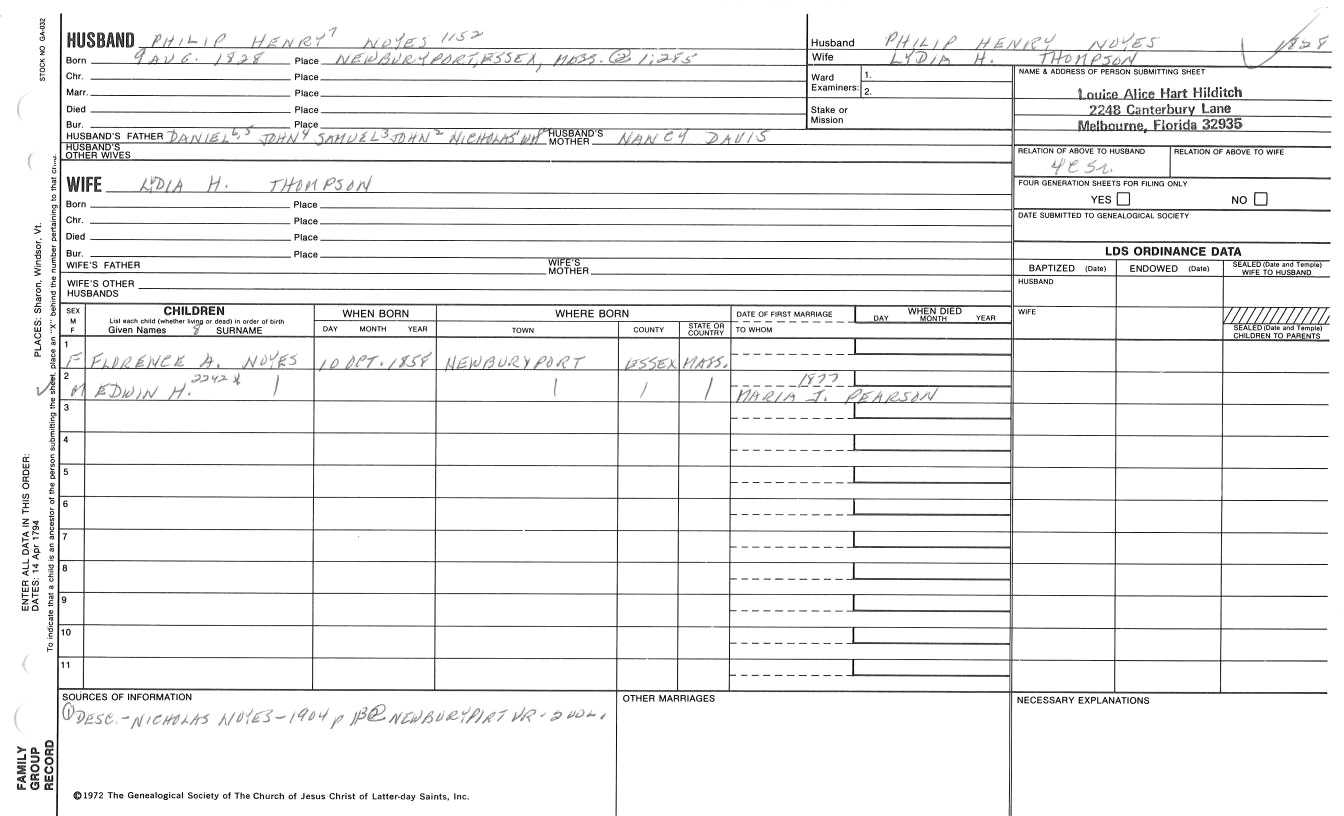 STOCK NO GA-032
HUSBAND PHILIP HENRY⁷ NOYES 1152
Born 9 AUG. 1828 Place NEWBURYPORT, ESSEX, MASS. ② 1:285
Chr. Place
Marr. Place
Died Place
Bur. Place
HUSBAND'S FATHER DANIEL⁶,⁵ JOHN⁴ SAMUEL³ JOHN² NICHOLAS HUSBAND'S MOTHER NANCY DAVIS
HUSBAND'S OTHER WIVES
Husband PHILIP HENRY NOYES 1828
Wife LYDIA H. THOMPSON
Ward Examiners: 1.
2.
Stake or Mission
NAME & ADDRESS OF PERSON SUBMITTING SHEET
Louise Alice Hart Hilditch
2248 Canterbury Lane
Melbourne, Florida 32935
RELATION OF ABOVE TO HUSBAND RELATION OF ABOVE TO WIFE
FOUR GENERATION SHEETS FOR FILING ONLY
YES NO
DATE SUBMITTED TO GENEALOGICAL SOCIETY
WIFE LYDIA H. THOMPSON
Born Place
Chr. Place
Died Place
Bur. Place
WIFE'S FATHER WIFE'S MOTHER
WIFE'S OTHER HUSBANDS
LDS ORDINANCE DATA
BAPTIZED (Date) ENDOWED (Date) SEALED (Date and Temple) WIFE TO HUSBAND
HUSBAND
WIFE
SEALED (Date and Temple) CHILDREN TO PARENTS
SEX M F
CHILDREN
List each child (whether living or dead) in order of birth
Given Names 8 SURNAME
WHEN BORN
DAY MONTH YEAR
WHERE BORN
TOWN COUNTY STATE OR COUNTRY
DATE OF FIRST MARRIAGE
TO WHOM
WHEN DIED
DAY MONTH YEAR
1
F FLORENCE A. NOYES 10 OCT. 1858 NEWBURYPORT ESSEX MASS.
2 2242 x 1877
M EDWIN H. MARIA J. PEARSON
3
4
5
6
7
8
9
10
11
SOURCES OF INFORMATION
① DESC.-NICHOLAS NOYES-1904 p ② NEWBURYPIRT VR- 2 VOL.
OTHER MARRIAGES
NECESSARY EXPLANATIONS
©1972 The Genealogical Society of The Church of Jesus Christ of Latter-day Saints, Inc.
PLACES: Sharon, Windsor, Vt.
ENTER ALL DATA IN THIS ORDER:
DATES: 14 Apr 1794
To indicate that a child is an ancestor of the person submitting the sheet, place an "X" behind the number pertaining to that
FAMILY
GROUP
RECORD